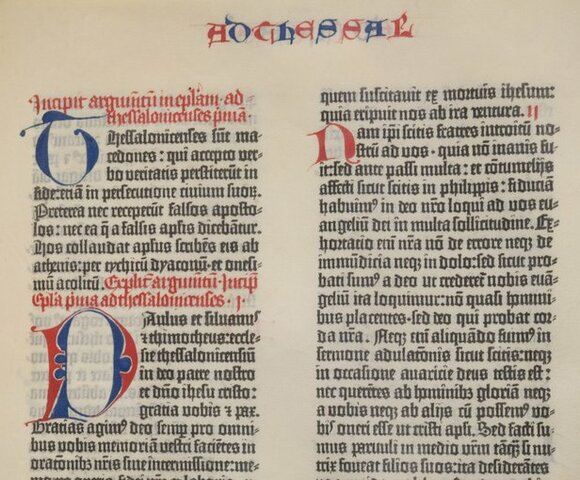 AD THESSAL
Incipit argumētū in eplam ad
thessalonicenses pmā.
Thessalonicenses sūt ma-
cedones: qui accepto ver-
bo veritatis perstiterūt in
fide: etiā in persecutione civium suoꝝ.
Preterea nec receperūt falsos aposto-
los: nec ea ꝙ a falsis aplis dicebātur.
Hos collaudat aplus scribēs eis ab
athenis: per tychicū dyaconū et onesi-
mū acolitū. Explicᷓ argumētū. Incipᷓ
Epla pma ad thessalonicenses .I.
Paulus et silvanus
⁊ thimotheus: eccle-
sie thessalonicensiū
in deo patre nostro
et dn̄o ihesu cristo:
gratia vobis ⁊ pax.
Gratias agimꝰ deo semp pro omni-
bus vobis memoriā vestri faciētes in
orationibꝫ nr̄is sine intermissione: me-
quem suscitavit ex mortuis ihesum:
quia eripuit nos ab ira ventura. II
Nam ip̄i scitis fratres introitū no-
strū ad vos · quia nō inanis fu-
it: sed ante passi multa: et cōtumelijs
affecti sicut scitis in philippis: fiduciā
habuimꝰ in deo nr̄o loqui ad vos eu-
angeliū dei in multa sollicitudine. Ex-
hortatio eni nr̄a nō de errore neqꝫ de
immūdicia neqꝫ in dolo: sed sicut pro-
bati sumꝰ a deo ut crederet̄ nobis euā-
geliū ita loquimur: nō quasi homini-
bus placentes · sed deo qui probat cor-
da nr̄a. Neqꝫ eni aliquādo fuimꝰ in
sermone adulatōnis sicut scitis: neqꝫ
in occasione avaricie deus testis est:
nec querētes ab hominibꝫ gloriā neqꝫ
a vobis neqꝫ ab alijs cū possemꝰ vo-
bis oneri esse ut cristi apli. Sed facti su-
mus parvuli in medio vr̄m tāꝗ̄ si nu-
trix foveat filios suos: ita desiderātes